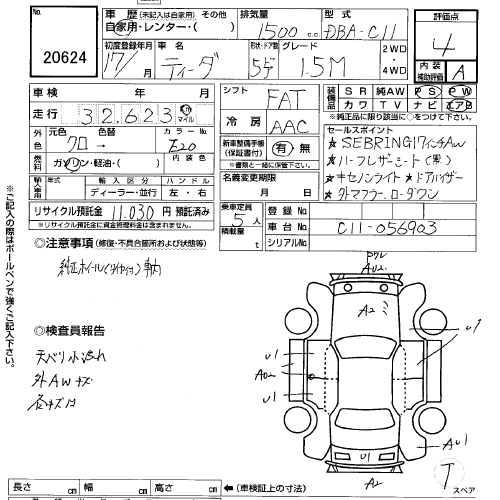 No.
20624
車歴 (未記入は自家用) その他
自家用・レンター・( )
排気量
1500 cc
型式
DBA-C11
評価点
4
初度登録年月
17/ 月
車名
ティーダ
形状・ドア数
5デ
グレード
1.5M
2WD
・
4WD
内装
補助評価
A
車検 年 月
シフト
FAT
装備品
SR 純AW PS PW
カワ TV ナビ エアB
※純正品に限り該当に○をつけて下さい。
走行 32,623 Km マイル
冷房
AAC
セールスポイント
★SEBRING17インチAW
★ハーフレザーシート(黒)
★キセノンライト★ドアバイザー
★外マフラー、ローダウン
外色
元色 色替
クロ →
カラーNo.
内装色
燃料
ガソリン・軽油・( )
新車整備手帳
(保証書付)
有・無
※書類と一緒に保管して下さい。
輸入車用
年式 輸入区分 ハンドル
ディーラー・並行 左・右
名義変更期限
月 日
リサイクル預託金 11,030 円 預託済み
※リサイクル預託金に資金管理料金は含まれません。
乗車定員
5人
積載量
t
登録No.
車台No. C11-056903
シリアルNo.
◎注意事項(修復・不具合箇所および状態等)
純正ホイル(タイヤ付)車内
◎検査員報告
天ベリ小汚れ
外AWキズ
各キズ凹
※ご記入の際はボールペンで強くご記入下さい。
A02
A2
U1
U1
A02
U1
U1
AU1
A2
T
スペア
長さ cm 幅 cm 高さ cm ←(車検証上の寸法)